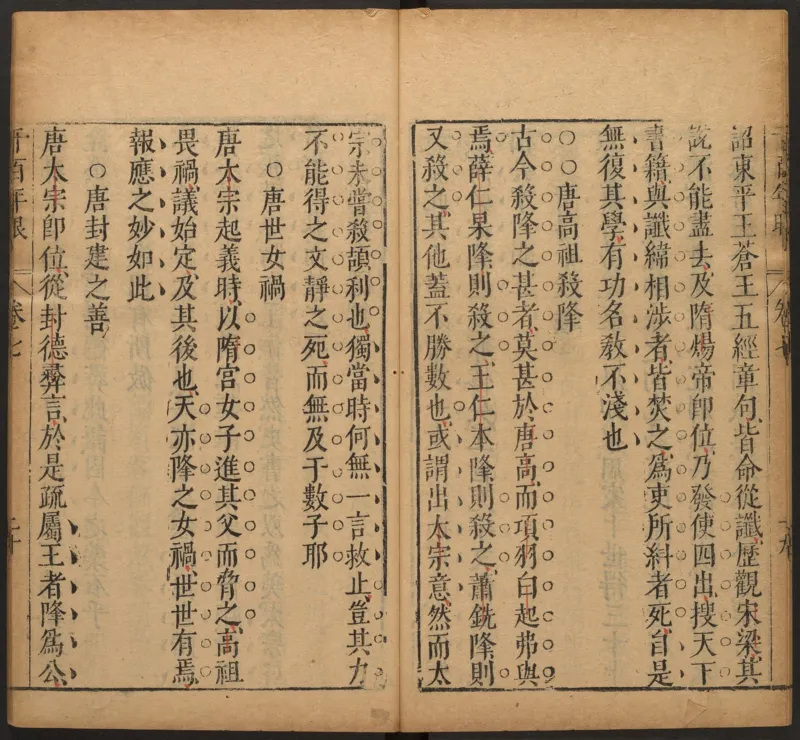 詔東平王蒼王五經章句皆命從讖歷觀宋梁其
說不能盡去及隋煬帝卽位乃發使四出搜天下
書籍與讖緯相涉者皆焚之爲吏所糾者死自是
無復其學有功名敎不淺也
○○唐高祖殺降
古今殺降之甚者莫甚於唐高而項羽白起弗與
焉薛仁杲降則殺之王仁本降則殺之蕭銑降則
又殺之其他蓋不勝數也或謂出太宗意然而太
宗未嘗殺頡利也獨當時何無一言救止豈其力
不能得之文靜之死而無及于數子耶
○唐世女禍
唐太宗起義時以隋宮女子進其父而脅之高祖
畏禍議始定及其後也天亦降之女禍世世有焉
報應之妙如此
○唐封建之善
唐太宗卽位從封德彝言於是疏屬王者降爲公
千百年眼
卷七